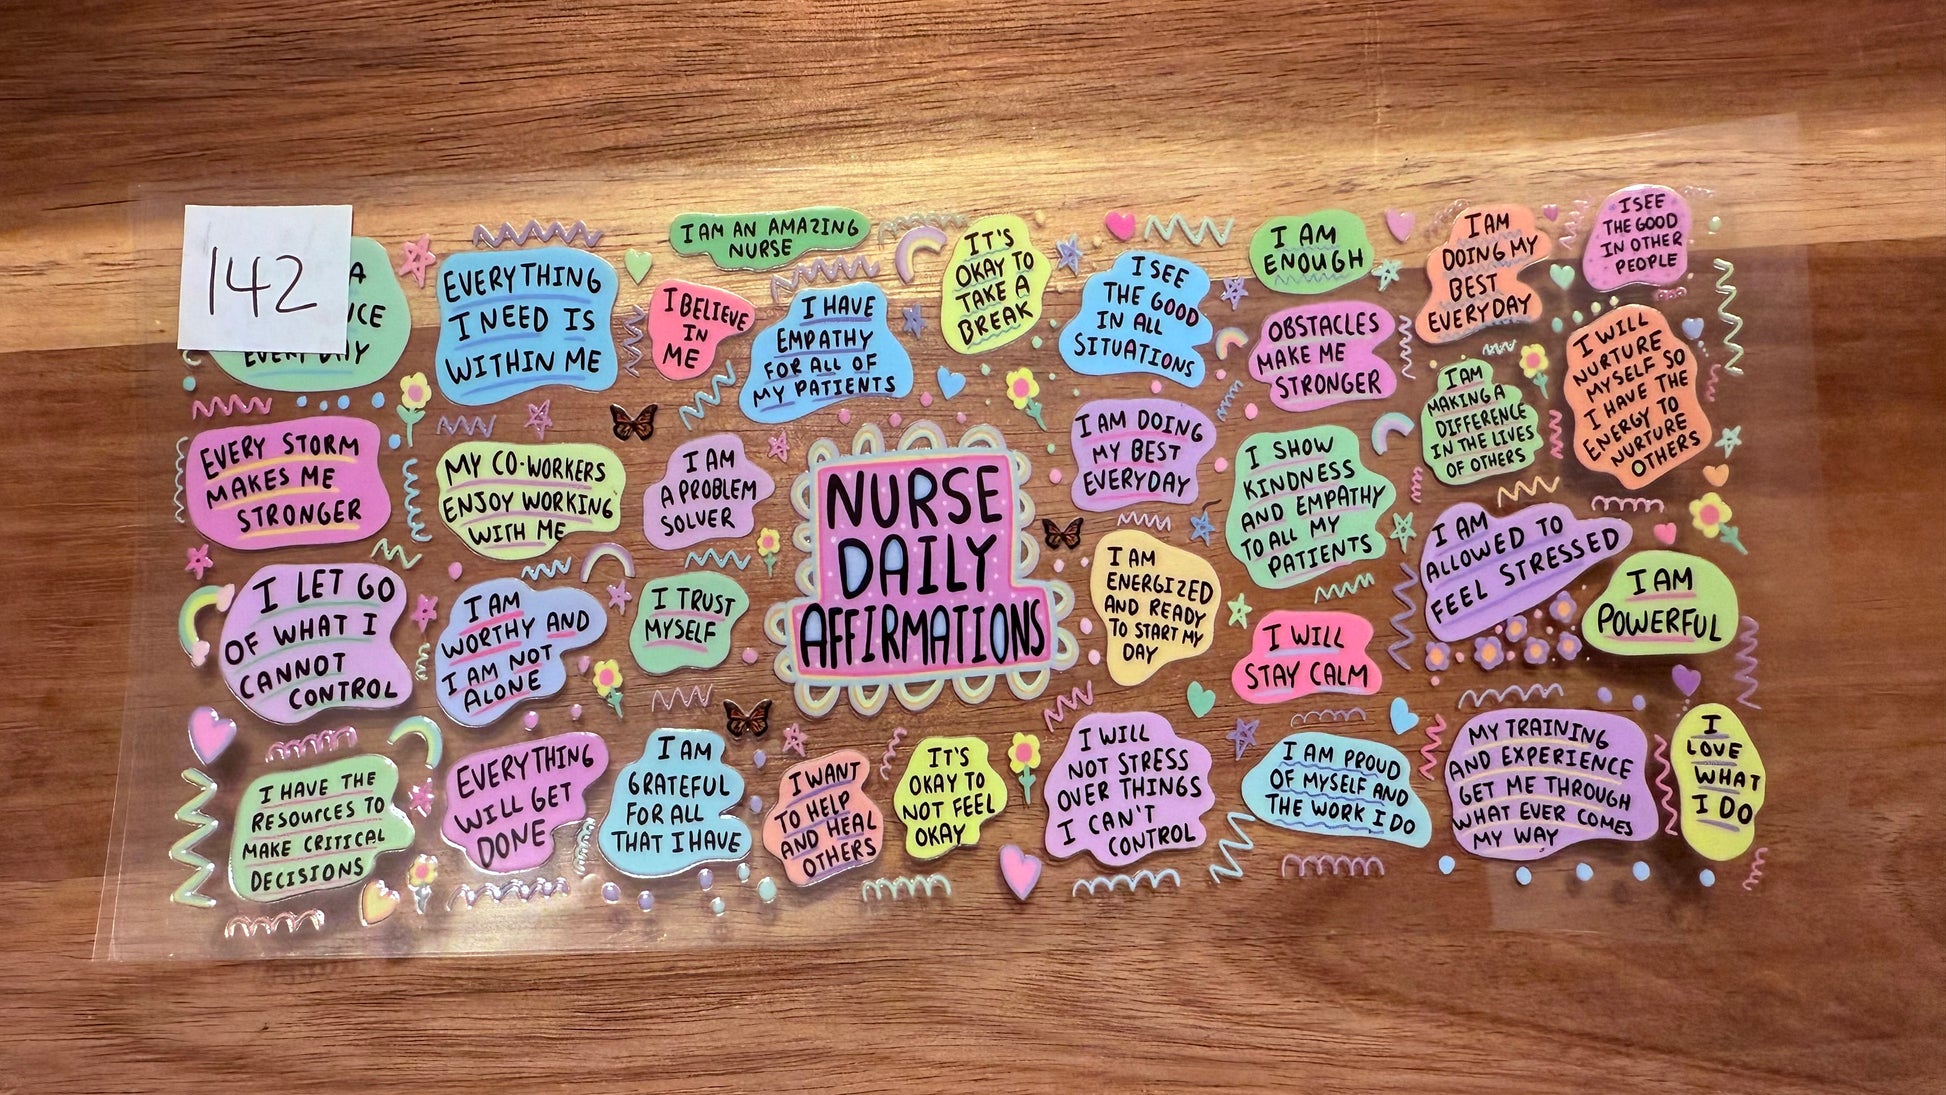 142
A
EVERYDAY
EVERYTHING
I NEED IS
WITHIN ME
I AM AN AMAZING
NURSE
I BELIEVE
IN
ME
I HAVE
EMPATHY
FOR ALL OF
MY PATIENTS
IT'S
OKAY TO
TAKE A
BREAK
I SEE
THE GOOD
IN ALL
SITUATIONS
I AM
ENOUGH
OBSTACLES
MAKE ME
STRONGER
I AM
DOING MY
BEST
EVERYDAY
I SEE
THE GOOD
IN OTHER
PEOPLE
I WILL
NURTURE
MYSELF SO
I HAVE THE
ENERGY TO
NURTURE
OTHERS
I AM
MAKING A
DIFFERENCE
IN THE LIVES
OF OTHERS
EVERY STORM
MAKES ME
STRONGER
MY CO-WORKERS
ENJOY WORKING
WITH ME
I AM
A PROBLEM
SOLVER
NURSE
DAILY
AFFIRMATIONS
I AM DOING
MY BEST
EVERYDAY
I SHOW
KINDNESS
AND EMPATHY
TO ALL MY
PATIENTS
I AM
ALLOWED TO
FEEL STRESSED
I AM
POWERFUL
I LET GO
OF WHAT I
CANNOT
CONTROL
I AM
WORTHY AND
I AM NOT
ALONE
I TRUST
MYSELF
I AM
ENERGIZED
AND READY
TO START MY
DAY
I WILL
STAY CALM
I HAVE THE
RESOURCES TO
MAKE CRITICAL
DECISIONS
EVERYTHING
WILL GET
DONE
I AM
GRATEFUL
FOR ALL
THAT I HAVE
I WANT
TO HELP
AND HEAL
OTHERS
IT'S
OKAY TO
NOT FEEL
OKAY
I WILL
NOT STRESS
OVER THINGS
I CAN'T
CONTROL
I AM PROUD
OF MYSELF AND
THE WORK I DO
MY TRAINING
AND EXPERIENCE
GET ME THROUGH
WHAT EVER COMES
MY WAY
I
LOVE
WHAT
I DO